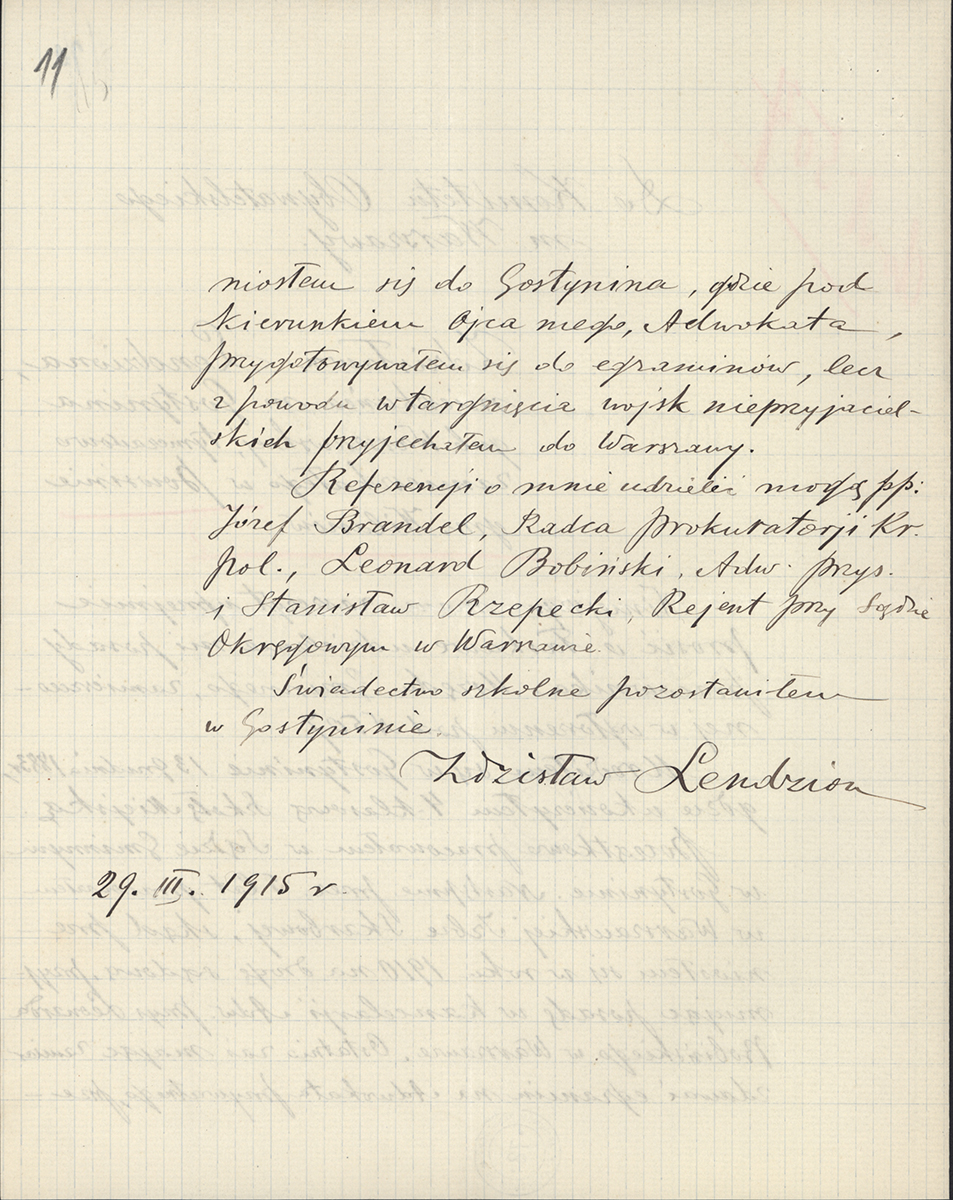 11
niosłem się do Gostynina, gdzie pod
kierunkiem Ojca mego, Adwokata,
przygotowywałem się do egzaminów, lecz
z powodu wtargnięcia wojsk nieprzyjaciel-
skich przyjechałem do Warszawy.
Referencji o mnie udzielić mogą pp:
Józef Brandel, Radca Prokuratorji Kr.
Pol., Leonard Bobiński, Adw. Przys.
i Stanisław Rzepecki, Rejent przy Sądzie
Okręgowym w Warszawie.
Świadectwo szkolne pozostawiłem
w Gostyninie.
Zdzisław Lendzion
29. III. 1915 r.